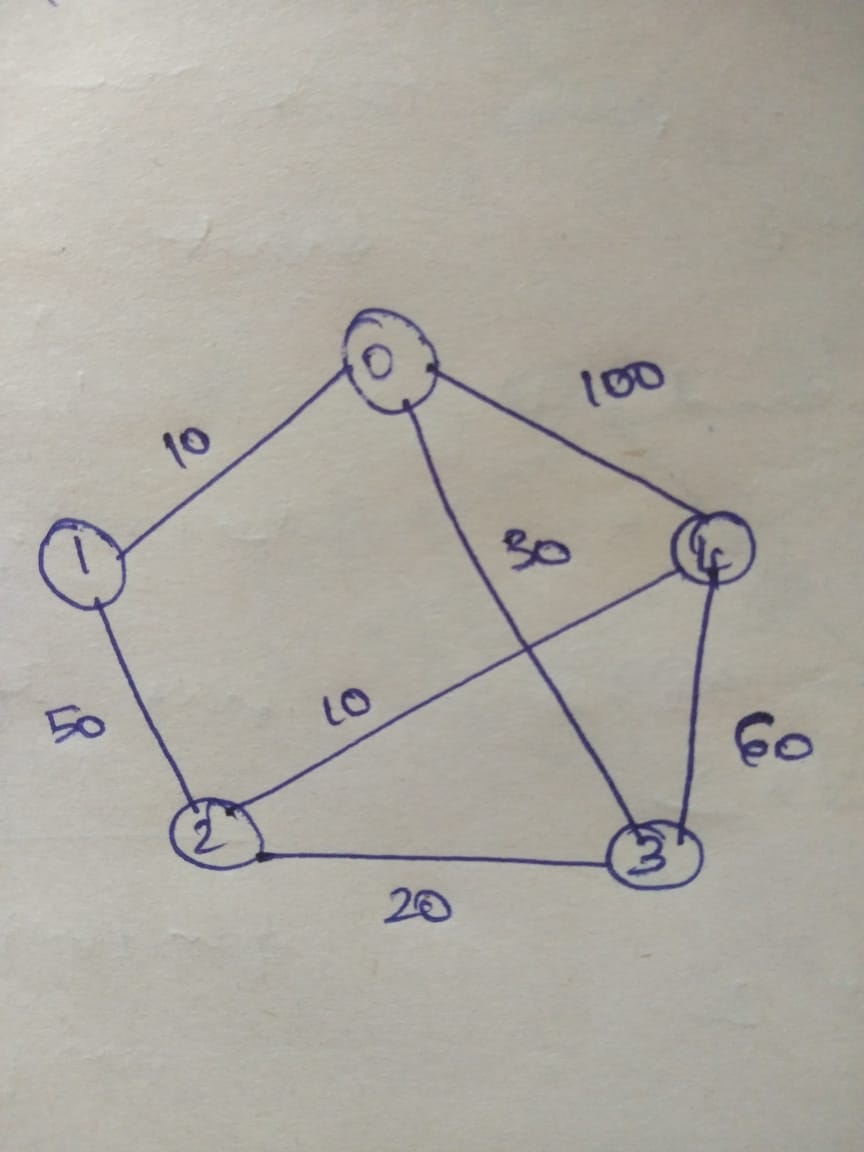 0
100
10
1
30
4
10
50
60
2
3
20